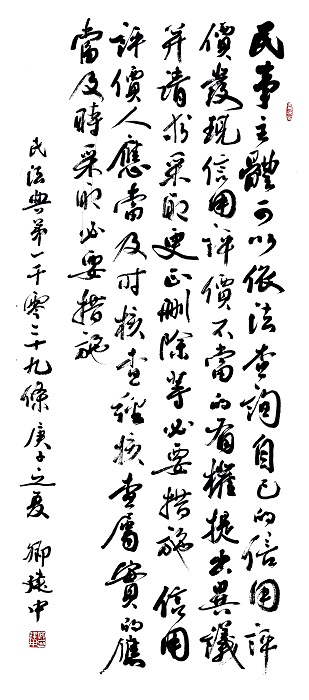 民事主體可以依法查詢自己的信用評
價發現信用評價不當的有權提出異議
并請求采取更正刪除等必要措施 信用
評價人應當及时核查經核查屬實的應
當及時采取必要措施
民法典第一千零二十九條 庚子之夏